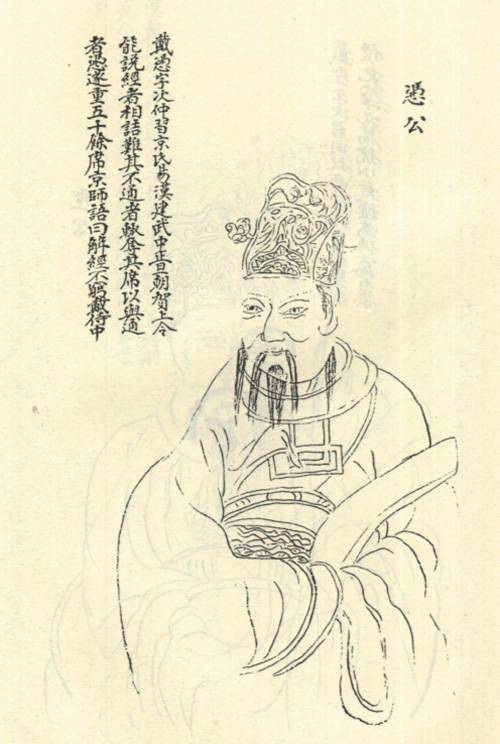 憑公
戴憑字次仲習京氏易漢建武中正旦朝賀上令
能說經者相詰難其不通者輒奪其席以與通
者憑遂重五十餘席京師語曰解經不窮戴侍中